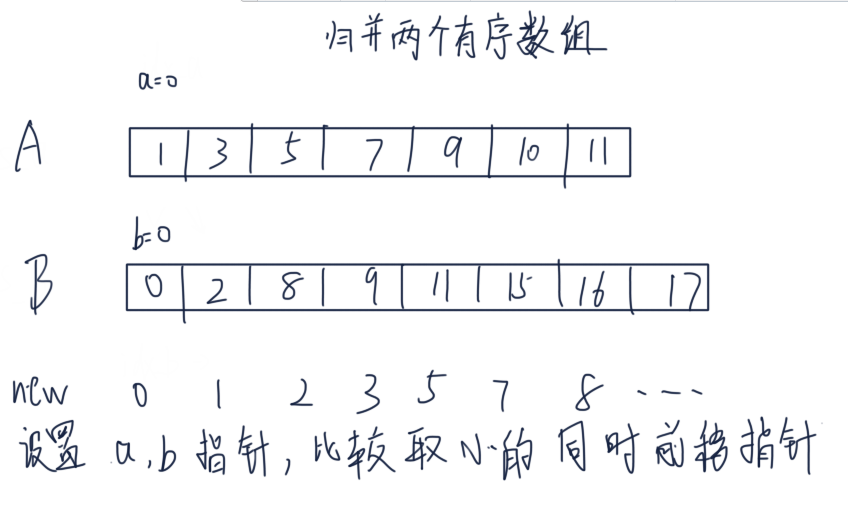 归并两个有序数组
a=0
A 1 3 5 7 9 10 11
b=0
B 0 2 8 9 11 15 16 17
new 0 1 2 3 5 7 8 ....
设置 a,b 指针,比较取小的同时前移指针